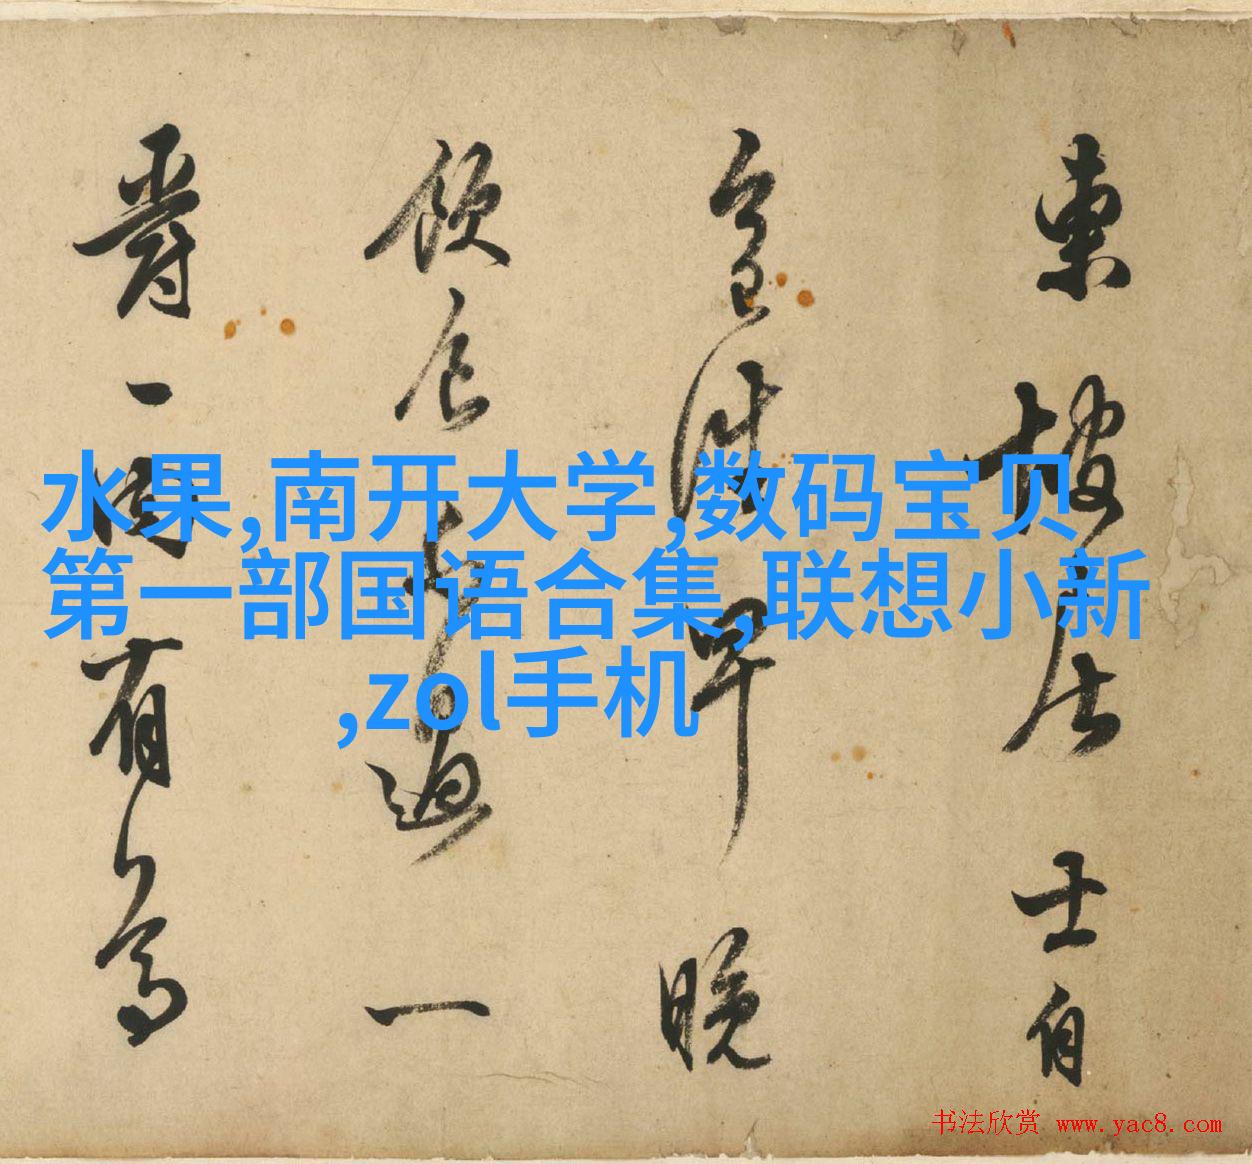 水果,南开大学,数码宝贝
第一部国语合集,联想小新
,zol手机
東坡居士自
今日早晚
飲食不過一
爵一肉有
书法欣赏 www.yac8.com